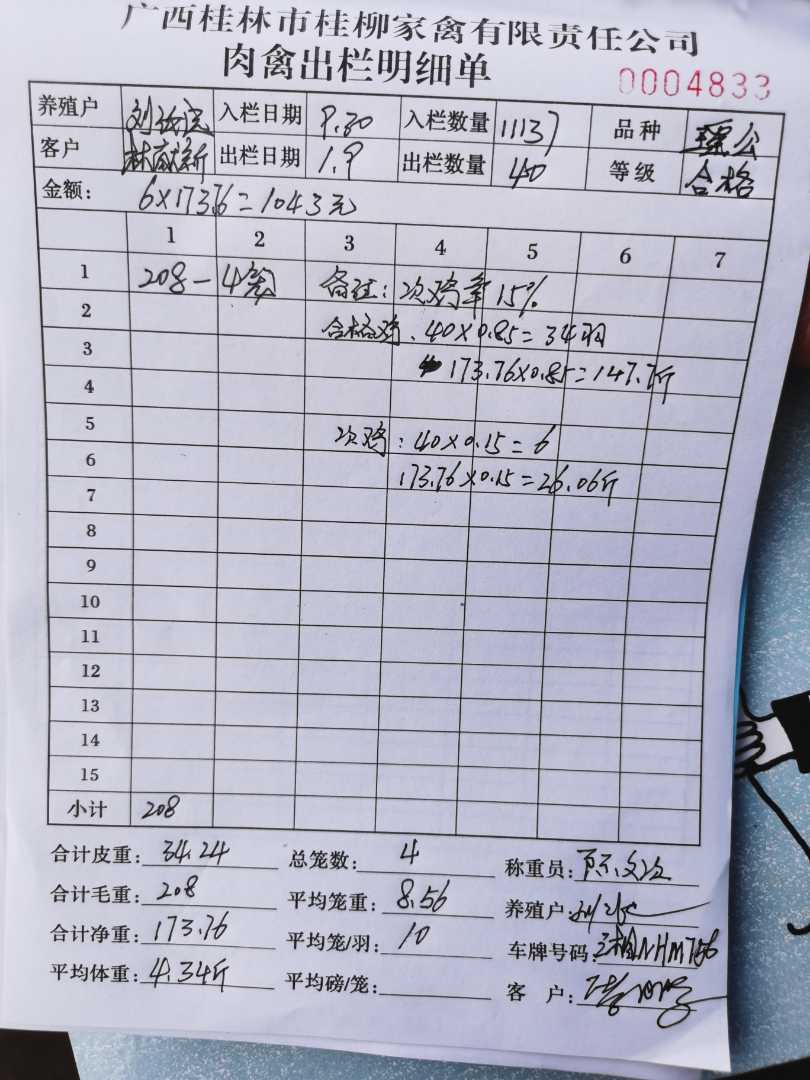 广西桂林市桂柳家禽有限责任公司
肉禽出栏明细单
0004833
养殖户 入栏日期 9.30 入栏数量 11137 品种 瑶公
客户 出栏日期 1.9 出栏数量 40 等级 合格
金额: 6×173.76=1043元
1 2 3 4 5 6 7
1 208-4笼 备注:次鸡率15%
2 合格鸡:40×0.85=34羽
3 173.76×0.85=147.7斤
4
5 次鸡:40×0.15=6
6 173.76×0.15=26.06斤
7
8
9
10
11
12
13
14
15
小计 208
合计皮重: 34.24 总笼数: 4 称重员:
合计毛重: 208 平均笼重: 8.56 养殖户:
合计净重: 173.76 平均笼/羽: 10 车牌号码:
平均体重: 4.34斤 平均磅/笼: 客户: